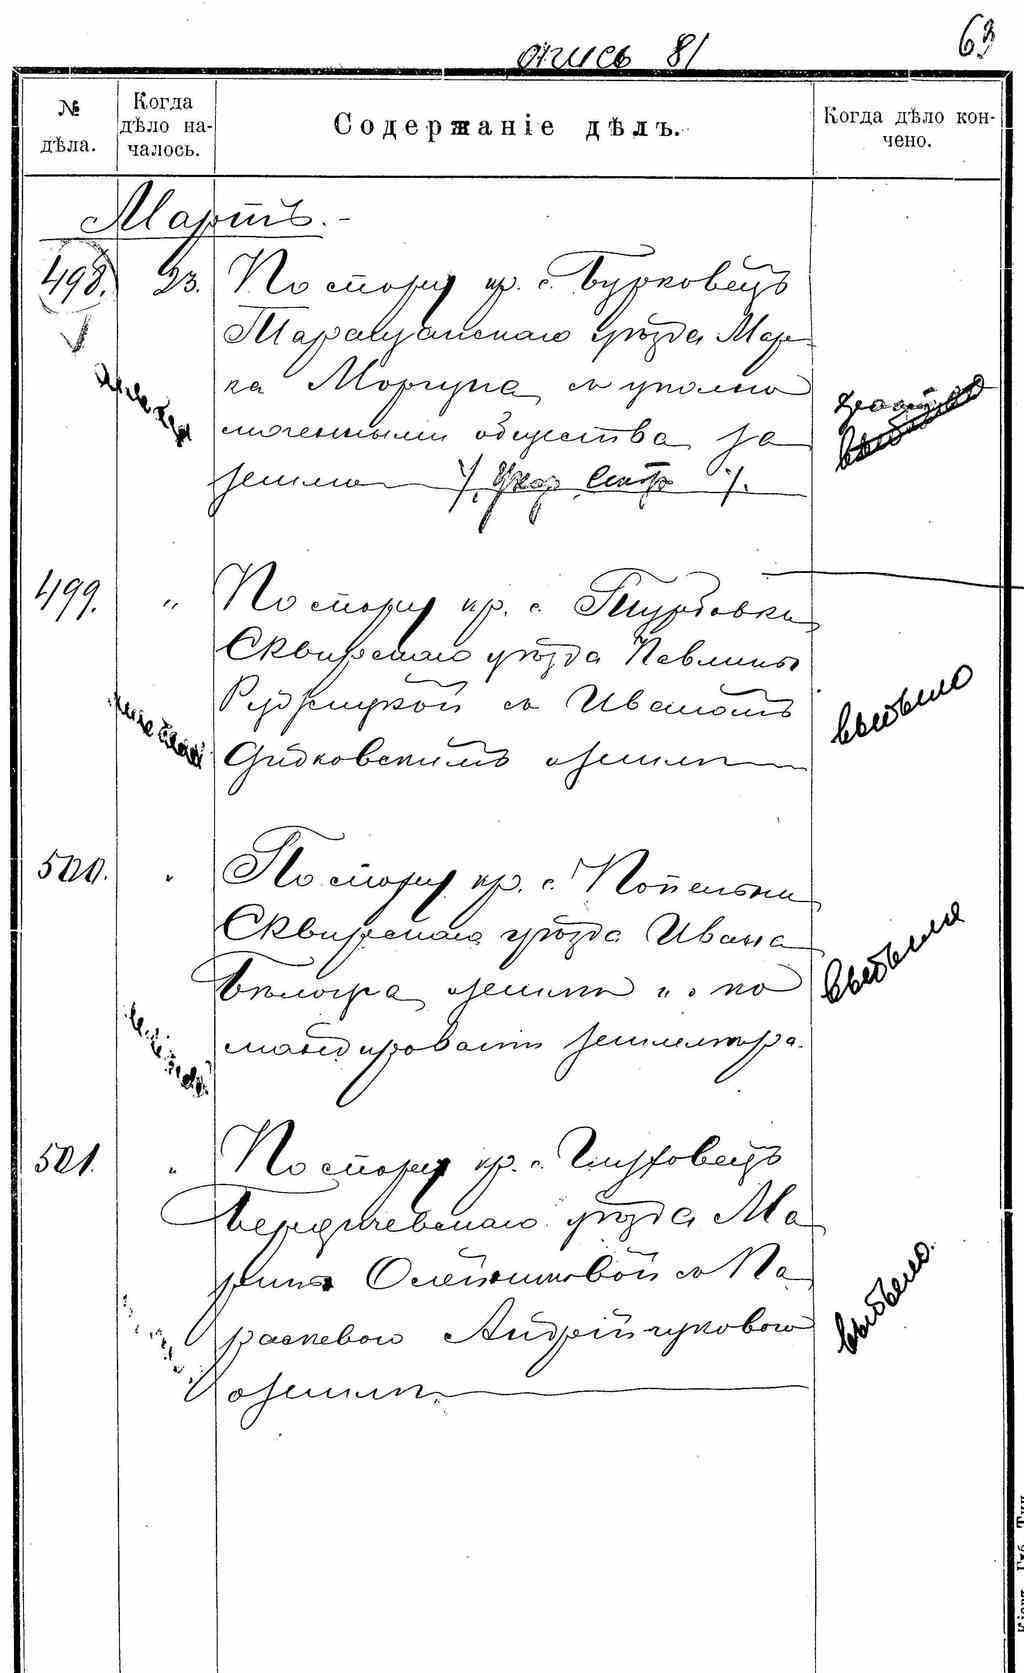 опись 81
63
№ дѣла.
Когда дѣло началось.
Содержаніе дѣлъ.
Когда дѣло кончено.
Мартъ. -
498. 23. По спору кр. с. Бурковецъ
Таращанскаго уѣзда Мар-
ка Моргуна съ уполно
моченными общества за
землю
выбыло
499. " По спору кр. с. Турбовки
Сквирскаго уѣзда Павлины
Рудницкой съ Иваномъ
Дидковскимъ о землѣ
выбыло
500. " По спору кр. с. Попельни
Сквирскаго уѣзда Ивана
Бѣлогра о землѣ и о ко
мандированіи землемѣра.
выбыло
501. " По спору кр. с. Глуховецъ
Бердичевскаго уѣзда Ма
рины Олейниковой съ Па
раскевою Андрійчуковою
о землѣ.
выбыло.
Кіевъ, Губ. Тип.